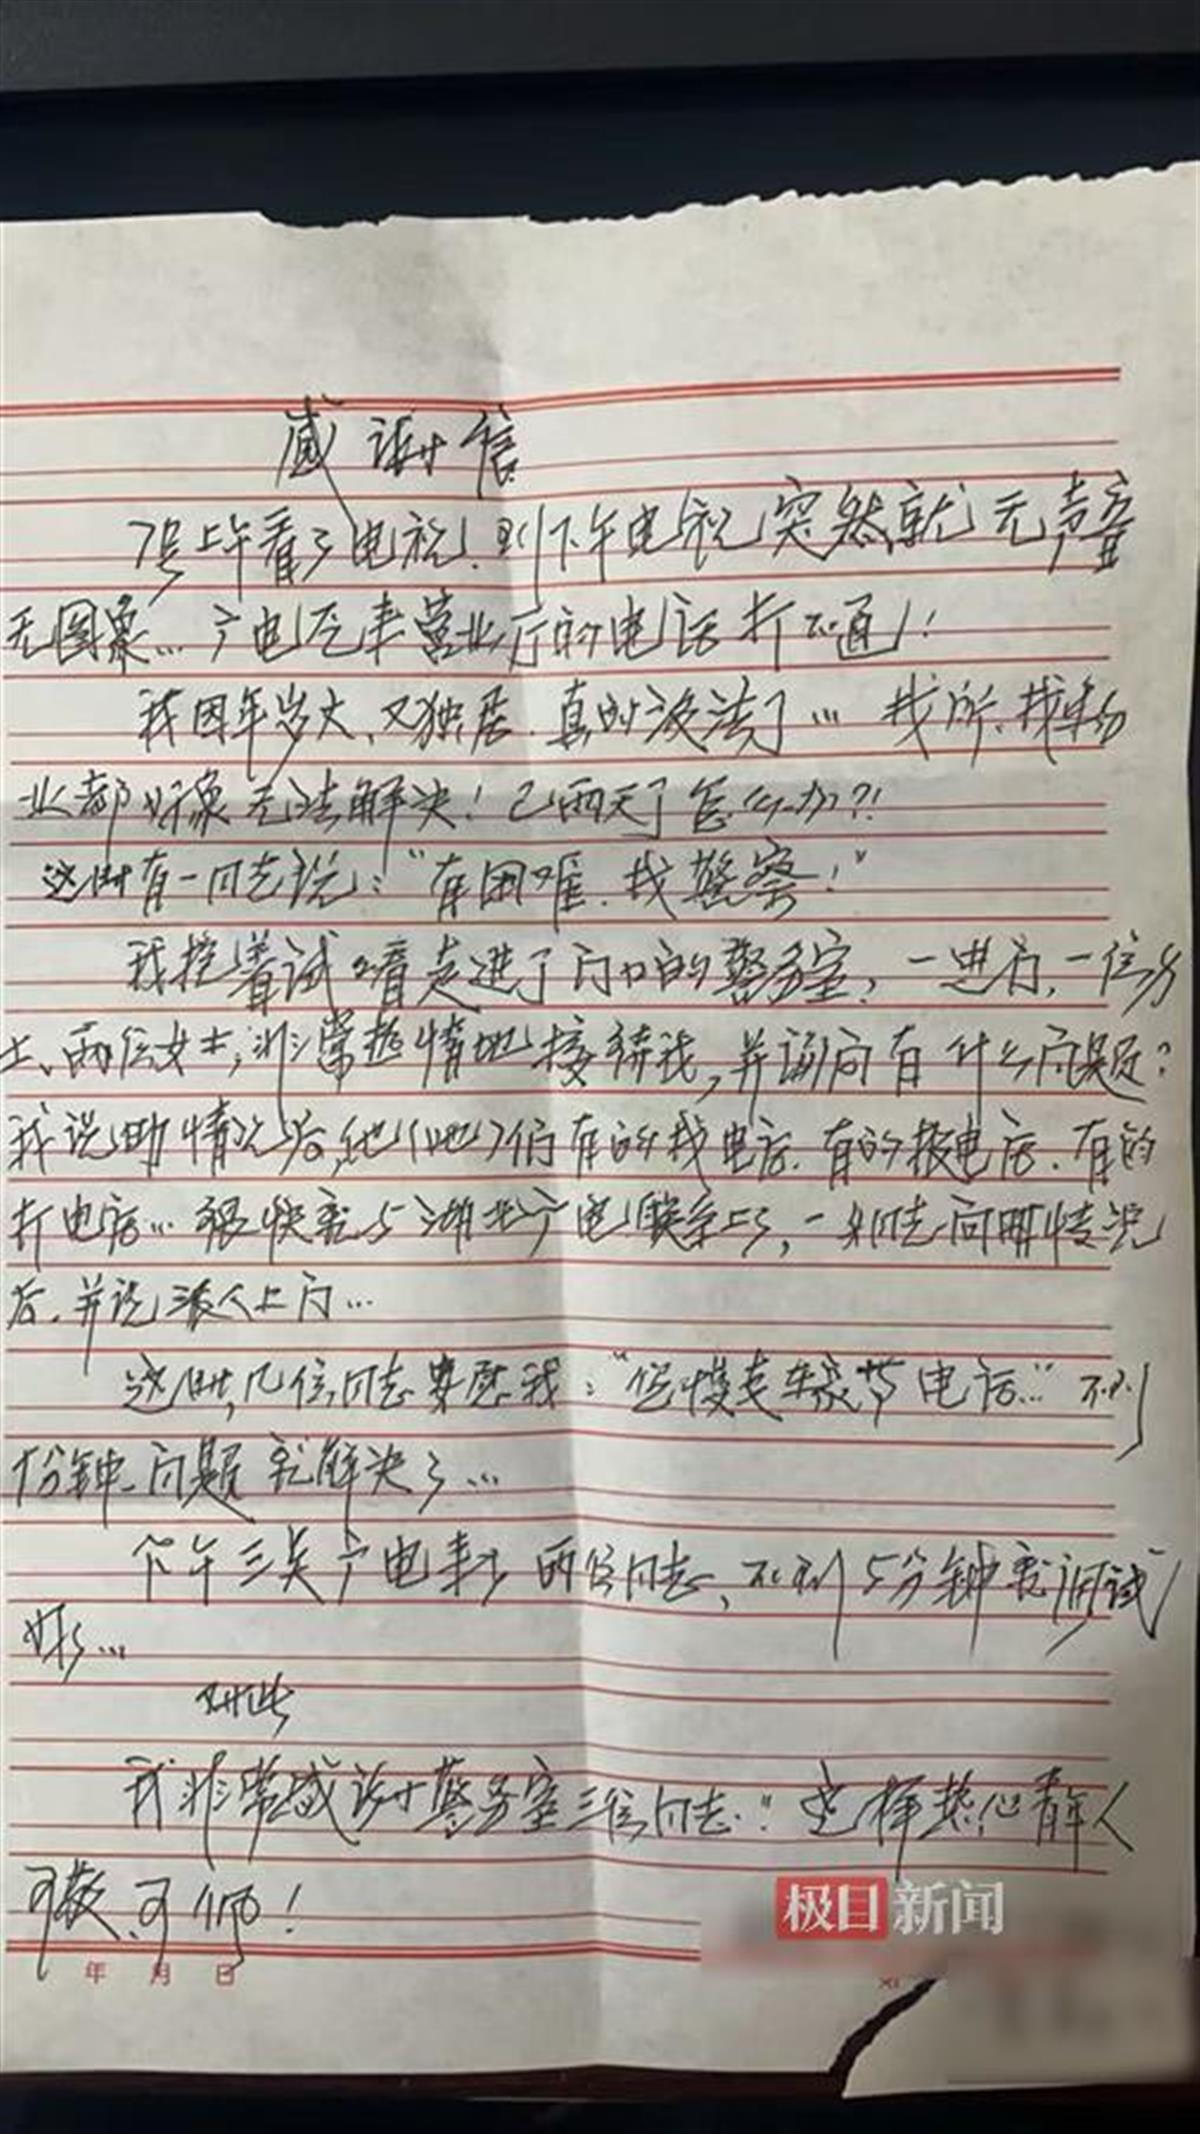 感谢信
7号上午看了电视!到下午电视突然就无声音
无图象…广电汽车营业厅的电话打不通!
我因年岁大、又独居.真的没法了…找所、找物
业都好像无法解决!已两天了怎么办?!
这时有一同志说:"有困难.找警察!"
我抱着试着走进了门口的警务室,一进门,一位男
士、两位女士,非常热情地接待我,并询问有什么问题?
我说明情况后,他(她)们有的找电话.有的报电话.有的
打电话…很快就与湖北广电联系上了,一同志问明情况
后.并说派人上门…
这时,几位同志安慰我:"您慢 电话…"不到
十分钟.问题就解决了…
下午三点广电来了两位同志,不到5分钟就调试
好了…
对此
我非常感谢警务室三位同志."这样热心青年人
可敬、可师!
极目新闻
年 月 日